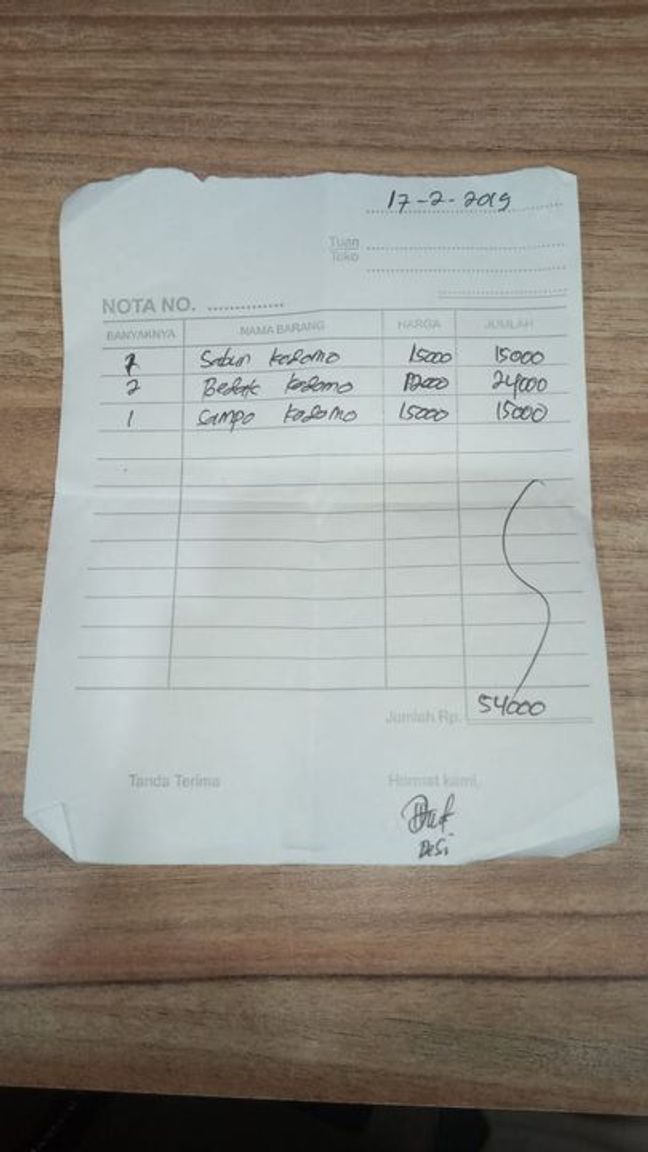 17-2-2019
Tuan
Toko
NOTA NO. ..............
BANYAKNYA NAMA BARANG HARGA JUMLAH
1 Sabun kodomo 15000 15000
2 Bedak kodomo 12000 24000
1 Sampo kodomo 15000 15000
Jumlah Rp. 54000
Tanda Terima Hormat kami,
Desi